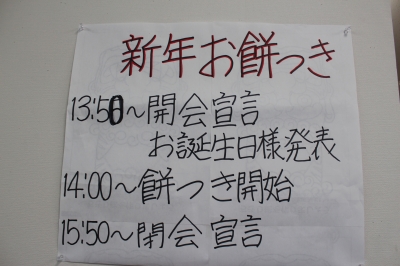 新年お餅つき
13:50〜開会宣言
お誕生日様発表
14:00〜餅つき開始
15:50〜閉会宣言